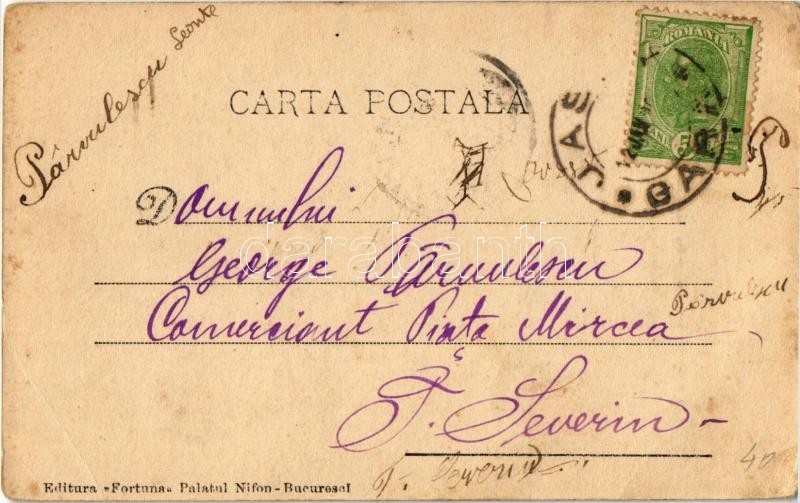 Pârvulescu Leonte
CARTA POSTALA
ROMANIA
JAS GARA
BANI 5
Domnului
George Pârvulescu
Comerciant Piața Mircea
Pârvulescu
T. Severin
T. Severin
40
Editura »Fortuna« Palatul Nifon-Bucuresci
darabanth